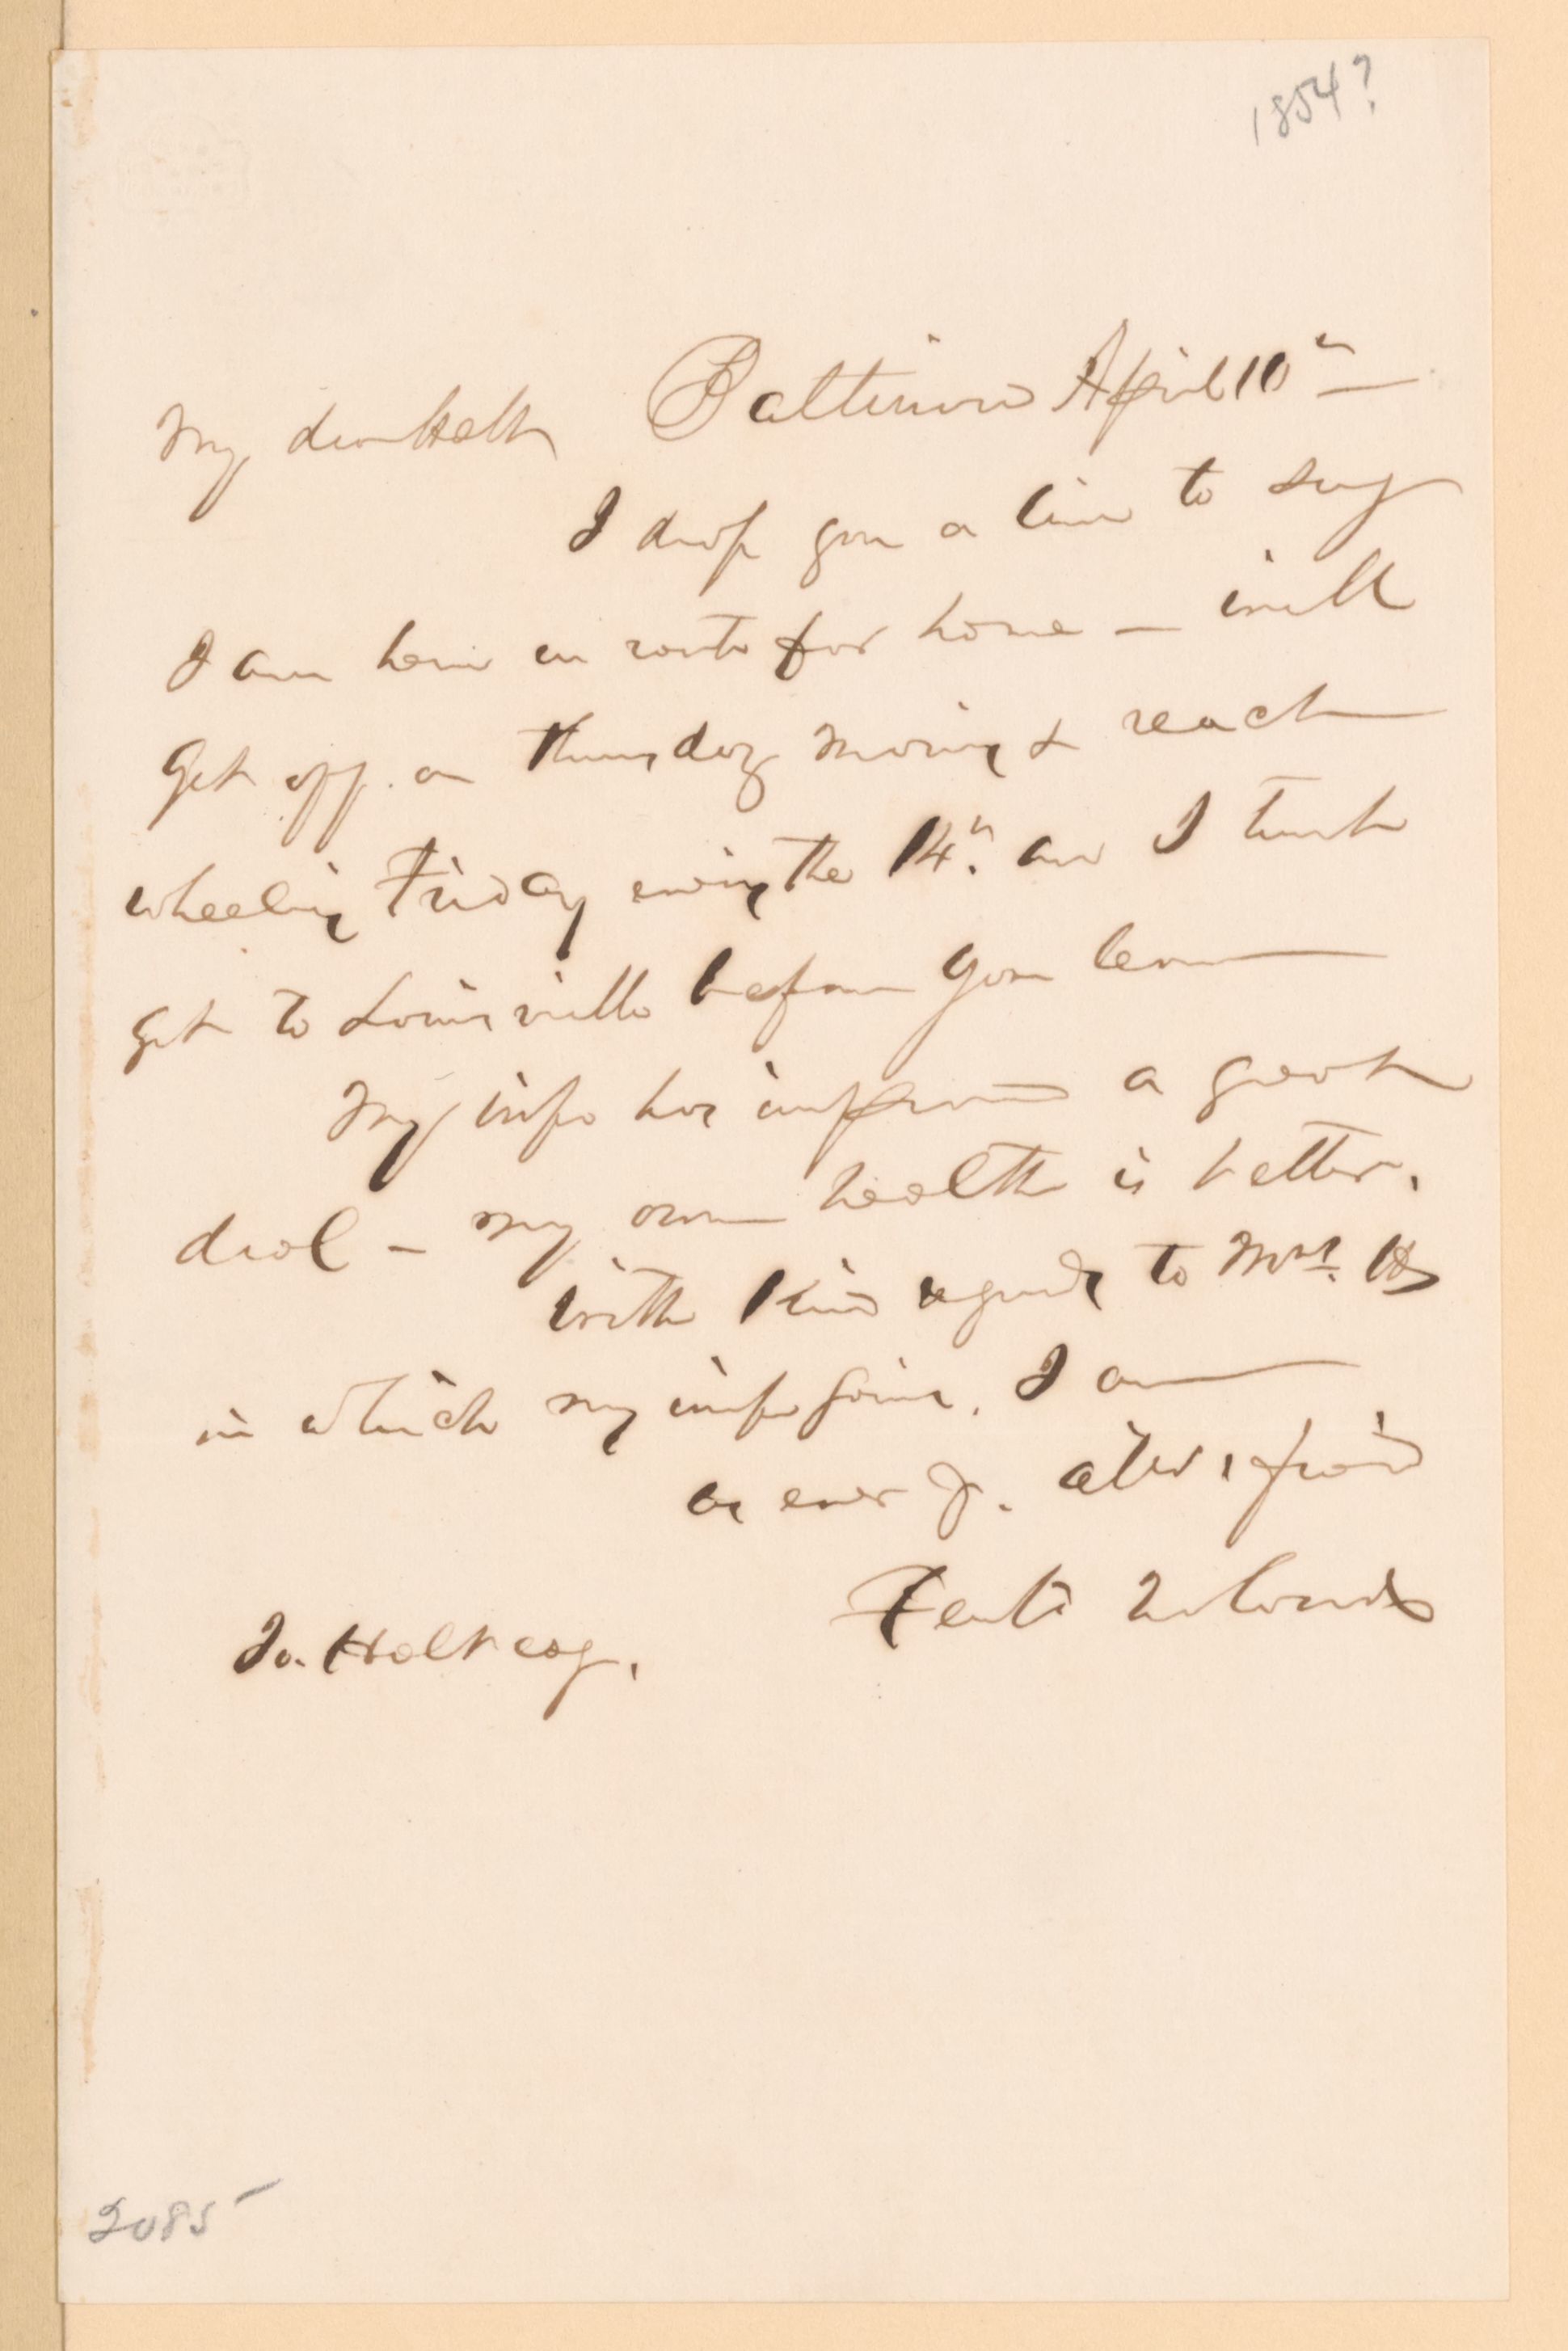 1854?
Baltimore April 10th
My dear Holt
I drop you a line to say
I am here en route for home – will
get off on Thursday morning & reach
Wheeling Friday evening the 14th. and I trust
get to Louisville before you leave
My wife has improved a great
deal – my own health is better.
With kind regards to Mrs. H
in which my wife joins, I am
as ever Yr. friend
Jo. Holt esq.
2085